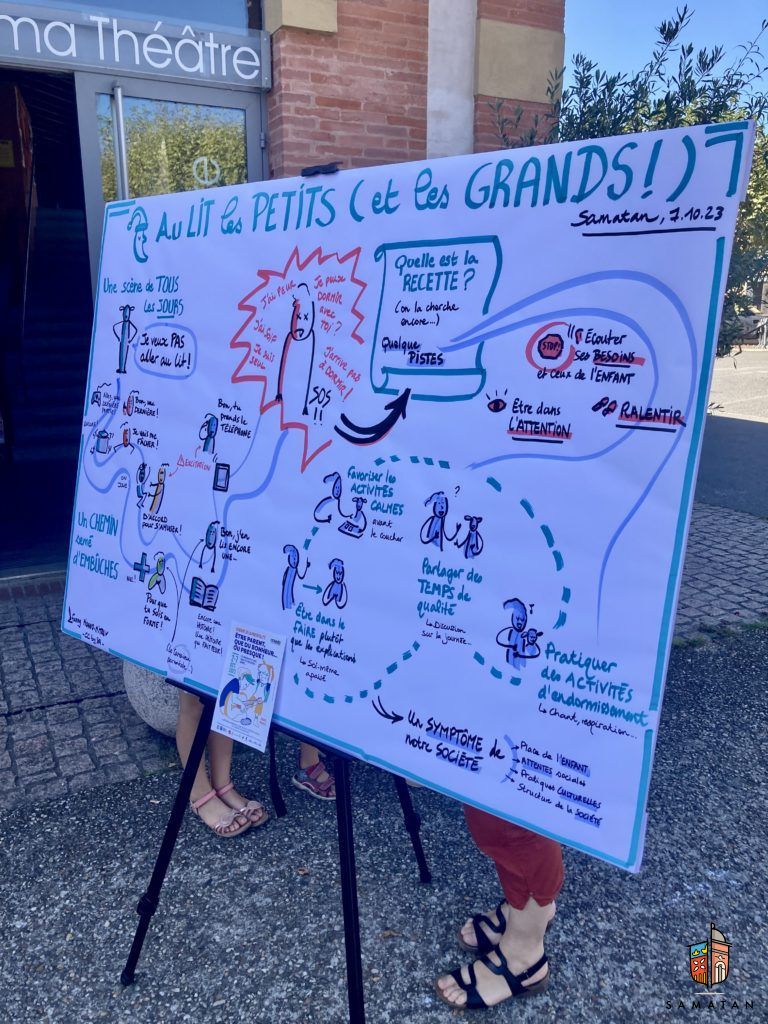 ma Théâtre
Au LIT les PETITS (et les GRANDS!)
Samatan, 7.10.23
Une scène de TOUS
les JOURS
Je veux PAS
aller au lit!
Bon, une
DERNIÈRE!
Je vais me
FÂCHER!
⚠ EXCITATION
D'ACCORD
pour S'AMUSER!
Bon, tu
prends le
TÉLÉPHONE
Bon, j'en
lis ENCORE
UNE...
Encore une
HISTOIRE!
Pour que
tu sois en
FORME!
Un CHEMIN
semé
d'EMBÛCHES
J'ai PEUR
J'ai SOIF
Je suis
SEUL
Je peux
DORMIR
avec
TOI?
J'arrive pas
à DORMIR!
SOS
!!
Quelle est la
RECETTE?
(on la cherche
encore...)
Quelque
PISTES
STOP!
Écouter
ses BESOINS
et ceux de l'ENFANT
Être dans
L'ATTENTION
RALENTIR
Favoriser les
ACTIVITÉS
CALMES
avant
le coucher
?
Partager des
TEMPS de
qualité
↳ Discussion
sur la journée...
Être dans le
FAIRE plutôt
que les explications
↳ Soi-même
apaisé
Pratiquer
des ACTIVITÉS
d'endormissement
↳ Chant, respiration...
Un SYMPTÔME de
notre SOCIÉTÉ
Place de l'ENFANT
ATTENTES sociales
Pratiques CULTURELLES
Structure de la SOCIÉTÉ
ÊTRE PARENT,
QUE DU BONHEUR...
OU PRESQUE!
SAMATAN